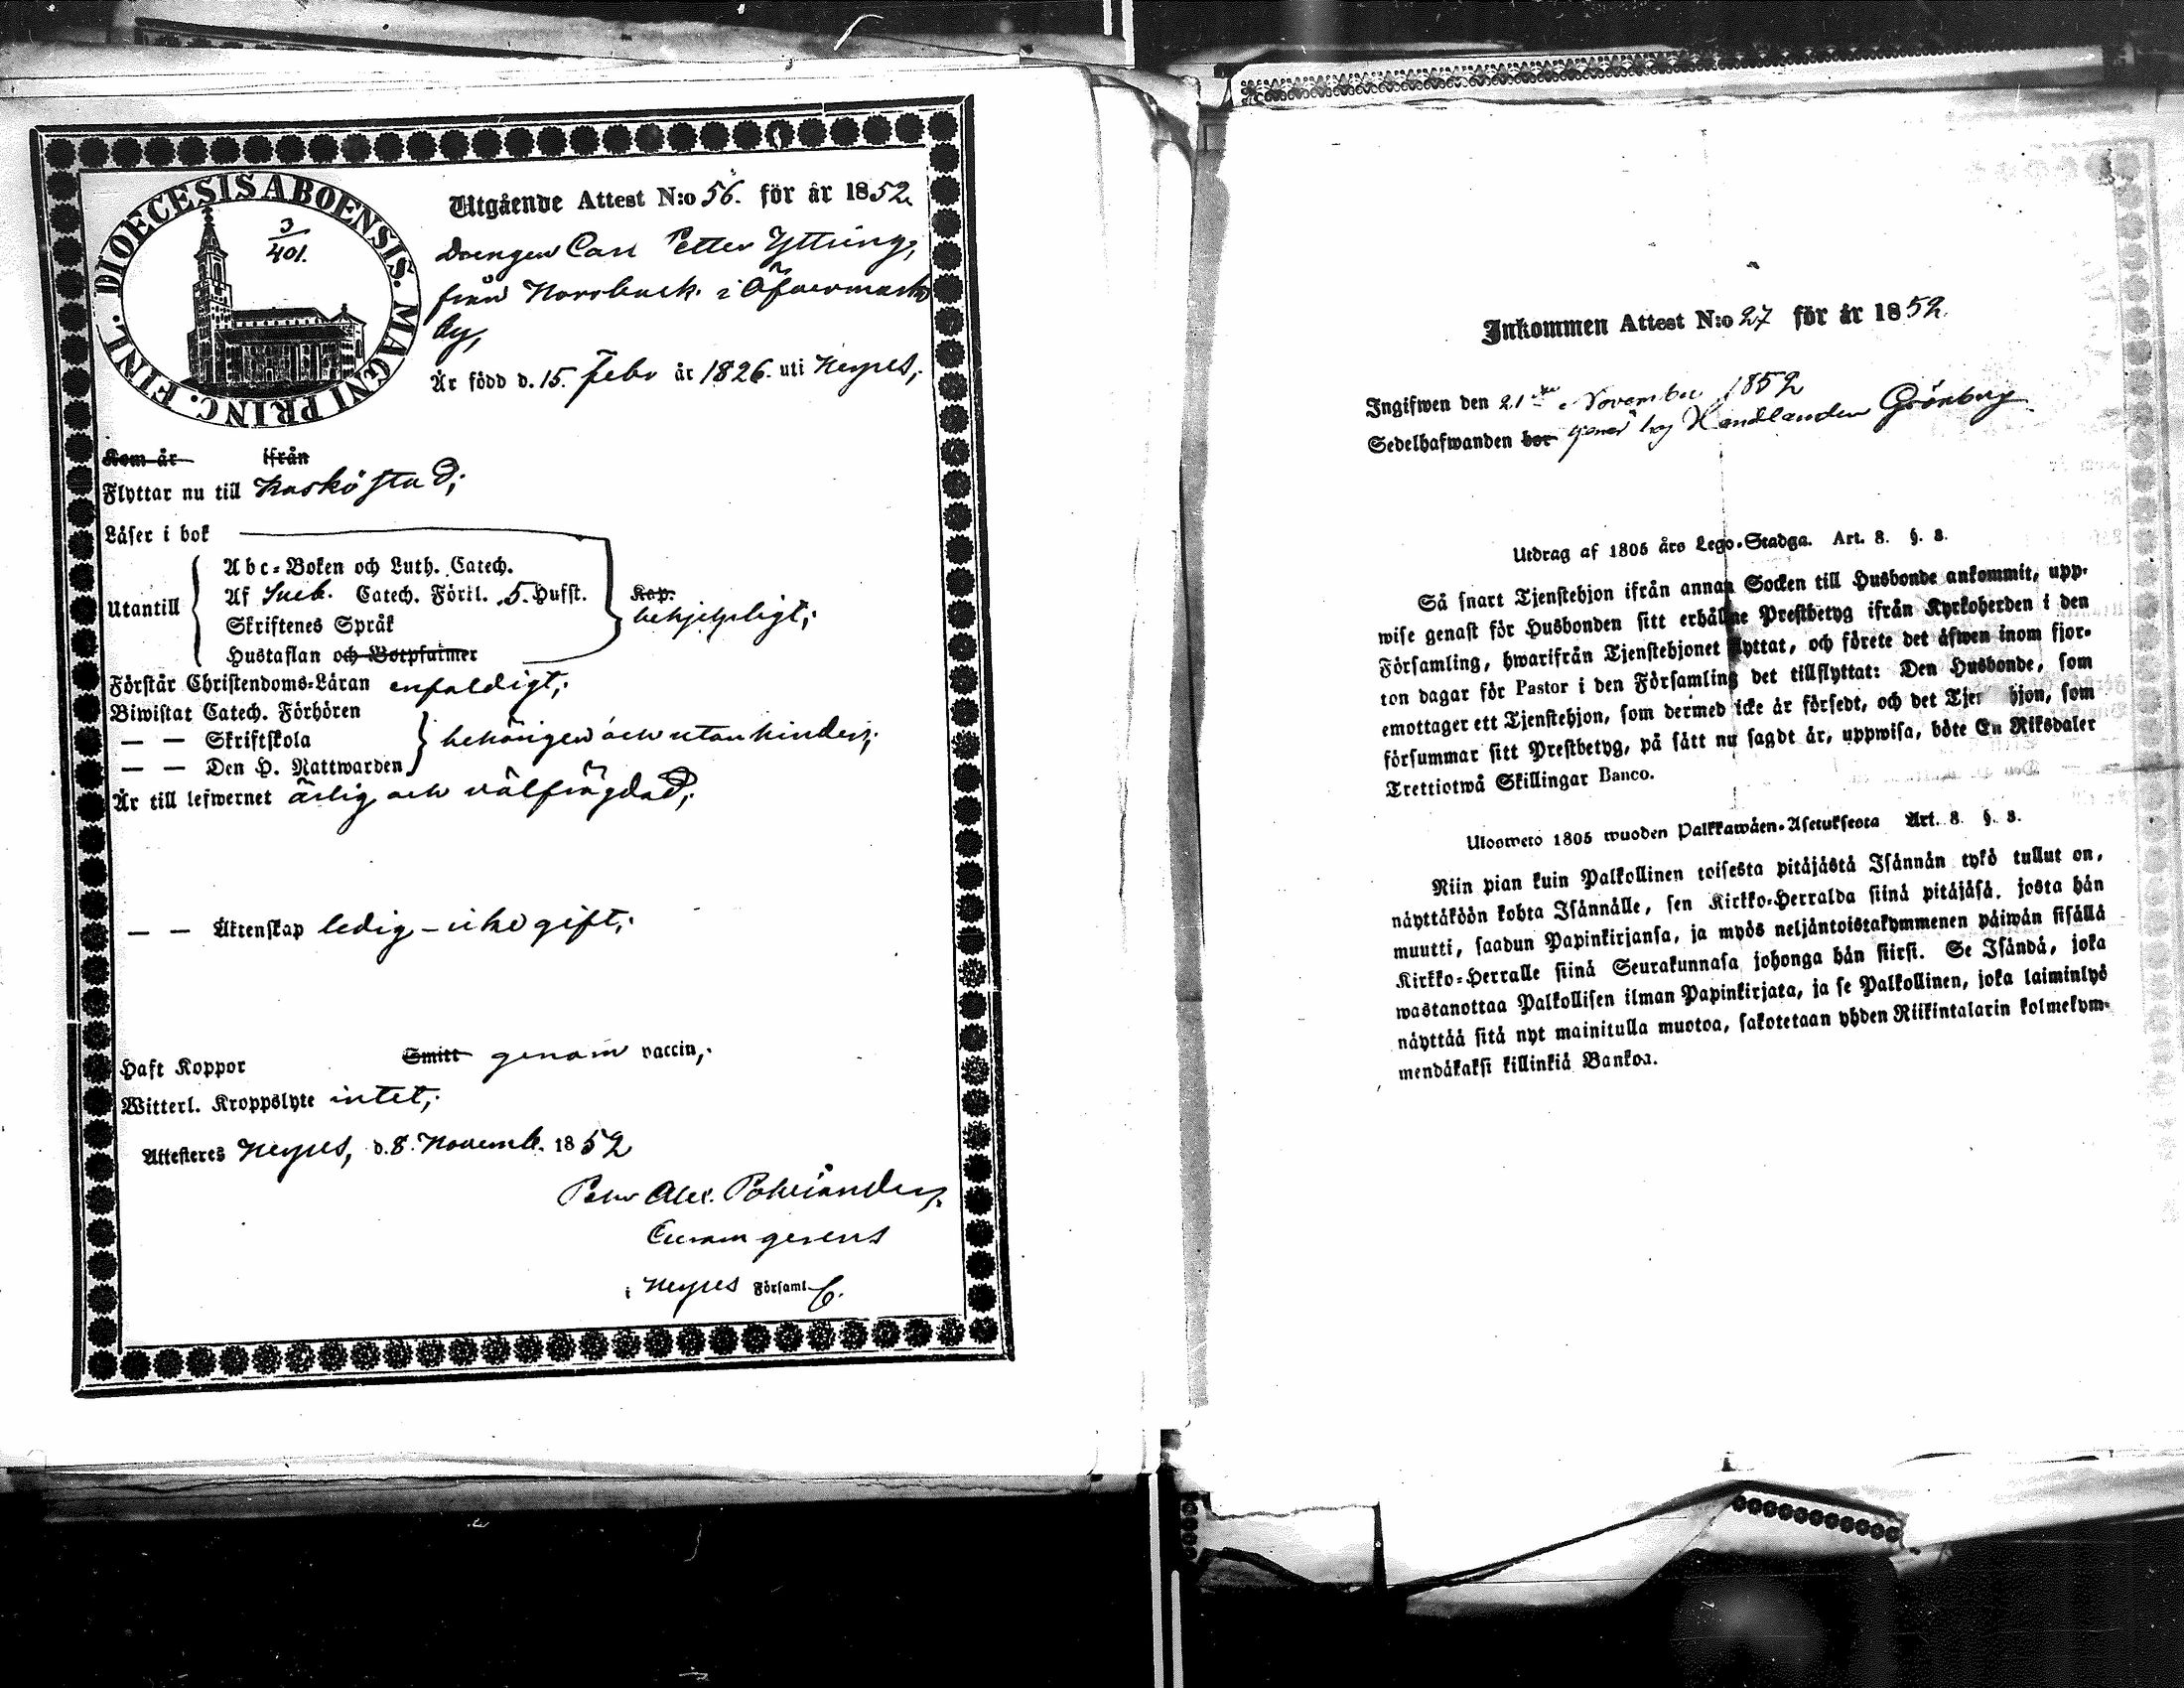 DIOECESIS ABOENSIS. MAGNI PRINC. FINL.
3
401.
Utgående Attest N:o 56. för år 1852.
Drengen Carl Petter Yttring,
från Norrback i Öfvermark
by,
År född d. 15. Febr år 1826. uti Nerpes,
Kom år ifrån
Flyttar nu till Kaskö stad;
Läser i bok
Utantill
Abc-Boken och Luth. Catech.
Af Sveb. Catech. Förkl. 5. Hufst.
Skriftenes Språk
Hustaflan och Botpsalmer
Kap.
behjelpligt;
Förstår Christendoms-Läran enfaldigt;
Biwistat Catech. Förhören
— — Skriftskola
— — Den H. Nattwarden
behörigen och utan hinder;
Är till lefwernet ärlig och välfrägdad;
— — Äktenskap ledig – icke gift;
Haft Koppor Smitt genom vaccin,
Witterl. Kroppslyte intet,
Attesteres Nerpes, d. 8. Novemb. 1852
Petr Alex.
Curam gerens
i Nerpes Församl.
Inkommen Attest N:o 27 för år 1852.
Ingifwen den 21 November 1852
Sedelhafwanden bor tjenar hos Handlanden Grönberg
Utdrag af 1805 års Lego-Stadga. Art. 8. §. 3.
Så snart Tjenstehjon ifrån annan Socken till Husbonde ankommit, upp-
wise genast för Husbonden sitt erhållne Prestbetyg ifrån Kyrkoherden i den
Församling, hwarifrån Tjenstehjonet flyttat, och förete det äfwen inom fjor-
ton dagar för Pastor i den Församling det tillflyttat: Den Husbonde, som
emottager ett Tjenstehjon, som dermed icke är försedt, och det Tjenstehjon, som
försummar sitt Prestbetyg, på sätt nu sagdt är, uppwisa, böte En Riksdaler
Trettiotwå Skillingar Banco.
Ulosweto 1805 wuoden Palkkawäen-Asetuksesta Art. 8. §. 3.
Niin pian kuin Palkollinen toisesta pitäjästä Isännän tykö tullut on,
näyttäköön kohta Isännälle, sen Kirkko-Herralda siinä pitäjäsä, josta hän
muutti, saadun Papinkirjansa, ja myös neljäntoistakymmenen päiwän sisällä
Kirkko-Herralle siinä Seurakunnasa johonga hän siirsi. Se Isändä, joka
wastanottaa Palkollisen ilman Papinkirjata, ja se Palkollinen, joka laiminlyö
näyttää sitä nyt mainitulla muotoa, sakotetaan yhden Riikintalarin kolmekym-
mendäkaksi killinkiä Bankoa.